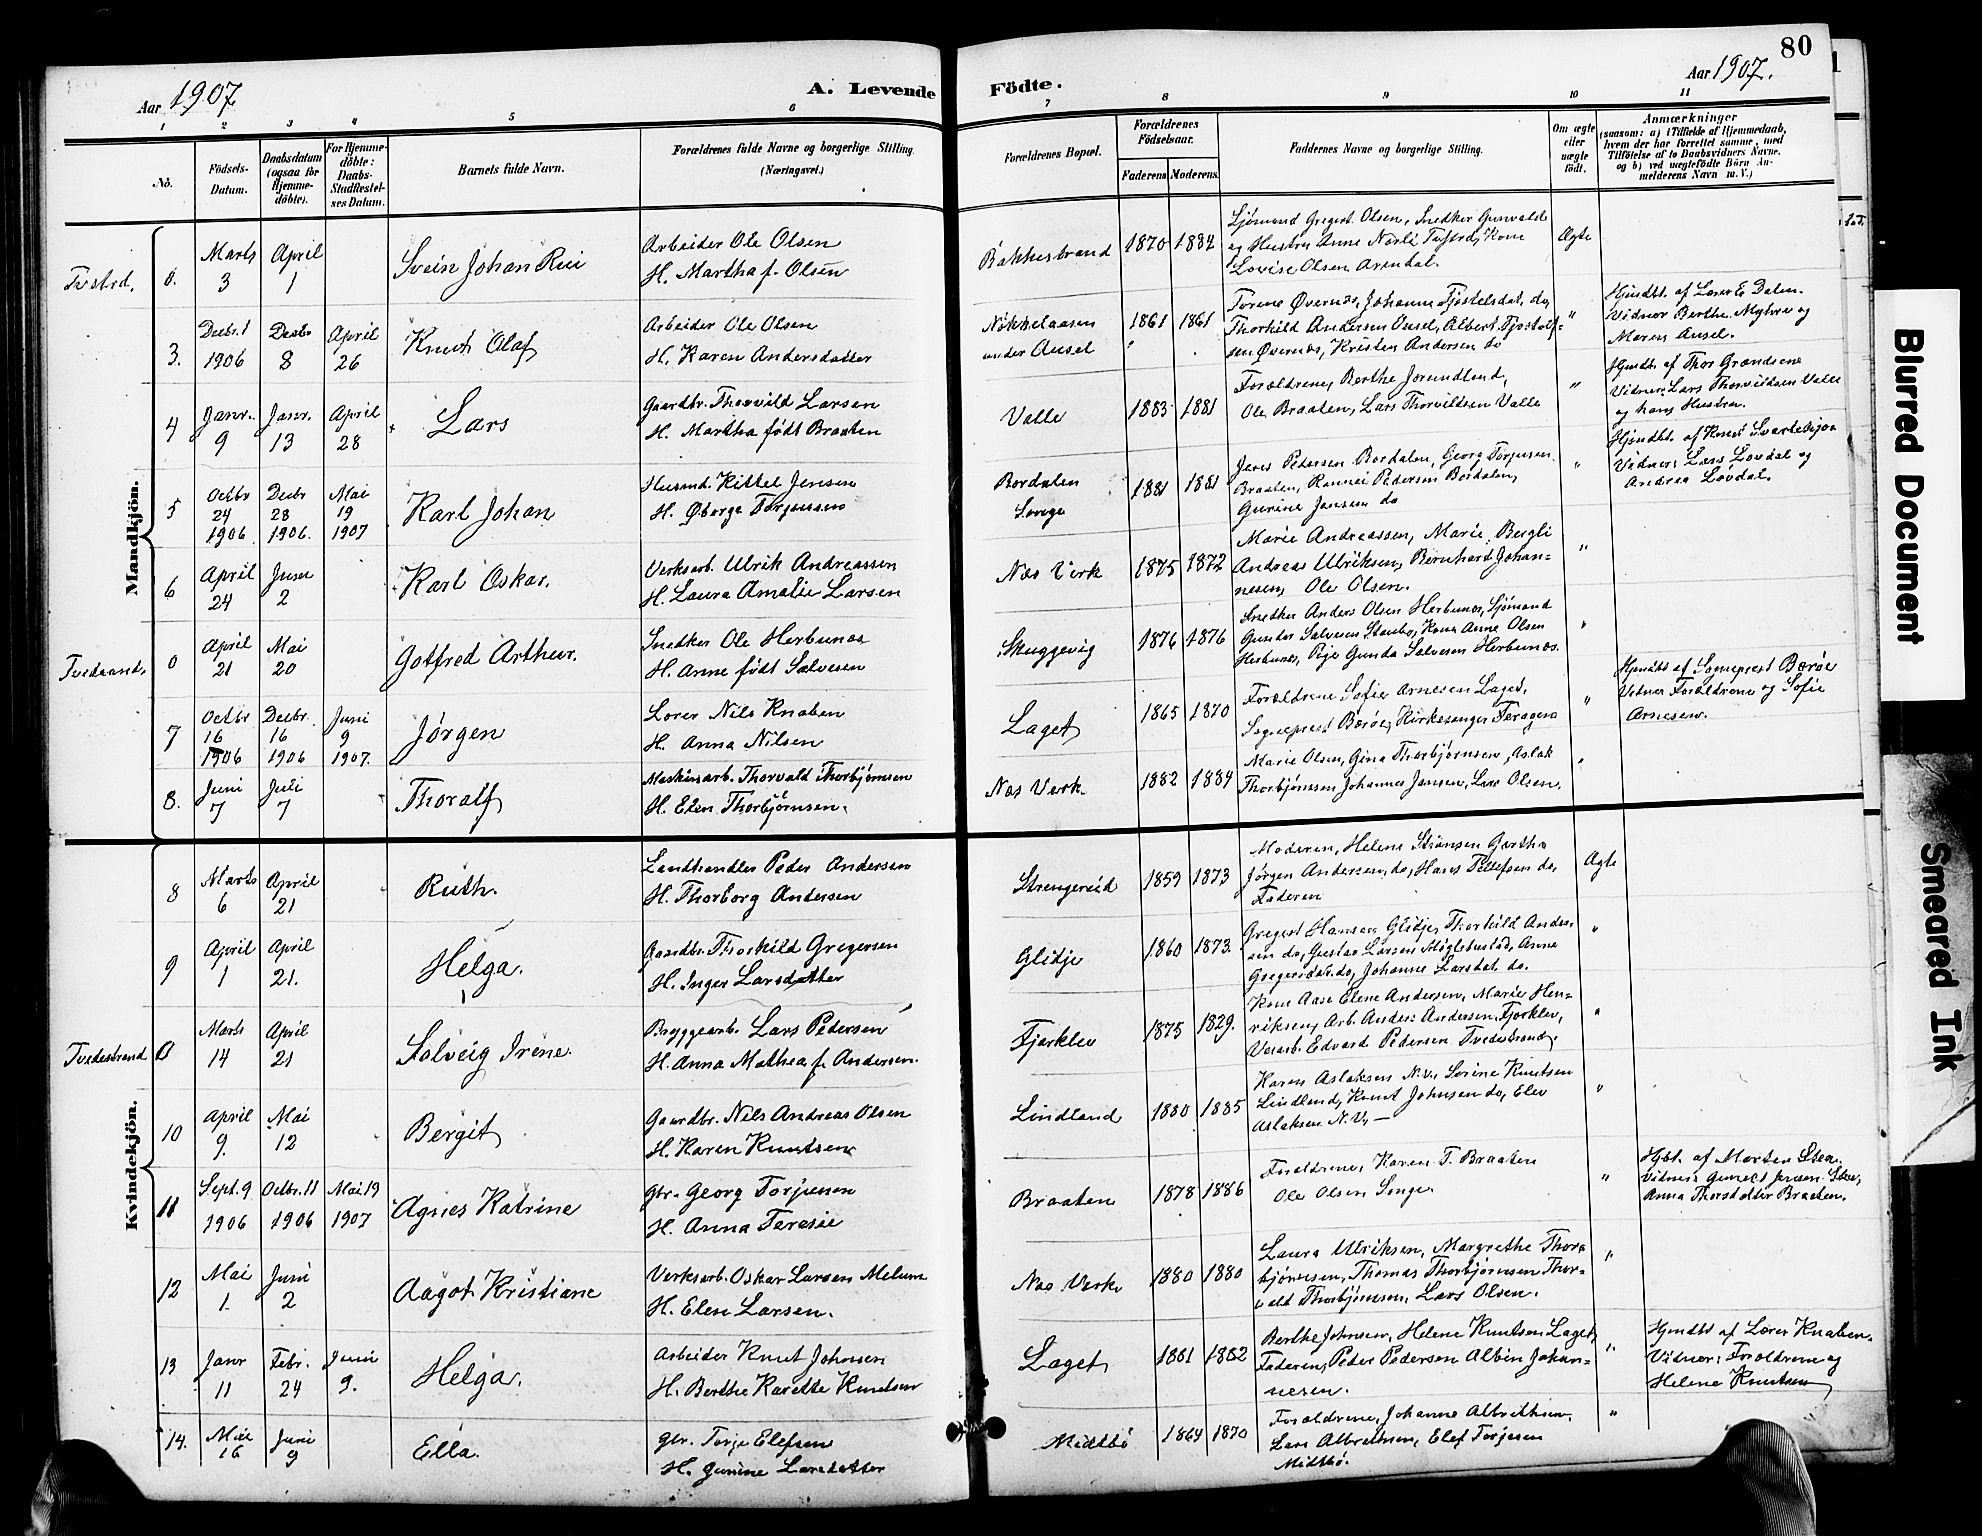 80
Aar 1907 A. Levende Födte. Aar 1907.
1 2 3 4 5 6 7 8 9 10 11
No.
Födsels-
Datum.
Daabsdatum
(ogsaa for
Hjemme-
döbte).
For Hjemme-
döbte:
Daabs-
Stadfæstel-
ses Datum.
Barnets fulde Navn.
Forældrenes fulde Navne og borgerlige Stilling.
(Næringsvei.)
Forældrenes Bopæl.
Forældrenes
Födselsaar.
Faderens Moderens.
Faddernes Navne og borgerlige Stilling.
Om ægte
eller
uægte
født.
Anmærkninger
(saasom: a) i Tilfælde af Hjemmedaab,
hvem der har forrettet samme, med
Tilföielse af to Daabsvidners Navne.
og b) ved uægtefödte Börn An-
melderens Navn m. V.)
Mandkjön.
Tvstrd. 0. Marts 3 April 1 Svein Johan Rui
Arbeider Ole Olsen
H. Martha f. Olsen
Bakkesbrand 1870 1882
Sjömand Gregert Olsen, Snedker Gunvald
og Hustru Anne Tvstrd, Kone
Lovise Olsen Arendal.
Ægte
3. Decbr. 1 1906 Decbr 8 April 26 Knut Olaf
Arbeider Ole Olsen
H. Karen Andersdatter
Nökkelaasen
under Ausel
1861 1861
Torine Övernæs, Johanne Fjostelsdat. do,
Thorkild Andersen Ausel, Albert Fjostolf-
sen Övernæs, Kristen Andersen do
"
Hjmdbt. af Lærer E. Dalen.
Vidner Berthe Myhre og
Maren Ausel.
4 Janr. 9 Janr. 13 April 28 Lars
Gaardbr. Thorvild Larsen
H. Martha födt Braaten
Valle 1883 1881
Forældrene, Berthe Jorundland,
Ole Braaten, Lars Thorvildsen Valle
"
Hjmdbt. af Thor Grændsene
Vidner: Lars Thorvildsen Valle
og hans Hustru.
5 Octbr 24 1906 Decbr 28 1906. Mai 19 1907 Karl Johan
Husmd. Kittel Jensen
H. Öborge Torjussen
Bordalen
Songe
1881 1881
Jens Pedersen Bordalen, Georg Torjusen
Braaten, Rannei Pedersen Bordalen,
Gurine Jensen do
"
Hjmdbt. af Knut Svartekjær
Vidner: Lars Lövdal og
Andrea Lövdal.
6 April 24 Juni 2 Karl Oskar.
Verksarb. Ulrik Andreassen
H. Laura Amalie Larsen
Næs Verk 1875 1872
Marie Andreassen, Marie Bergli
Andreas Ulriksen, Bernhard Johan-
nesen, Ole Olsen.
"
Tvedesand, 0 April 21 Mai 20 Gotfred Arthur.
Snedker Ole Herbunæs
H. Anne födt Salvesen
Skuggevig 1876 1876
Snedker Anders Olsen Herbunes, Sjömand
Gunder Salvesen Staubo, Kone Anne Olsen
Herbunes, Pige Gunda Salvesen Herbunæs.
"
7 Octbr 16 1906 Decbr. 16 1906 Juni 9 1907. Jörgen
Lærer Nils Knaben
H. Anna Nilsen
Laget 1865 1870
Forældrene, Sofie Arnesen Laget,
Sogneprest Bærøe, Kirkesanger Feragen
"
Hjmdbt af Sogneprest Bærøe
Vidner Forældrene og Sofie
Arnesen.
8. Juni 7 Juli 7 Thoralf
Maskinarb. Thorvald Thorbjørnsen
H. Elen Thorbjørnsen.
Næs Verk. 1882 1884
Marie Olsen, Gina Thorbjørnsen, Aslak
Thorbjørnsen Johannes Jensen, Lars Olsen.
"
Kvindekjön.
8 Marts 6 April 21 Ruth.
Landhandler Peder Andersen
H. Thorborg Andersen
Strengereid 1859 1873
Moderen, Helene Strönsen Gartha
Jörgen Andersen do, Hans Tellefsen do,
Faderen
Ægte
9 April 1 April 21. Helga.
Gaardbr. Thorkild Gregersen
H. Inger Larsdatter
Glidje 1860 1873.
Gregert Hansen Glidje, Thorkild Ander-
sen do, Gustav Larsen Miglebustad, Anne
Gregersdat. do, Johanne Larsdat. do.
"
Tvedestrand 0 Marts 14 April 21 Solveig Irene.
Bryggearb. Lars Pedersen
H. Anna Mathea f. Andersen.
Fjærklev 1875 1829.
Kone Aase Elene Andersen, Marie Hen-
riksen, Arb. Anders Andersen, Fjærklev,
Verarb. Edvard Pedersen Tvedestrand.
"
10 April 9. Mai 12 Bergit
Gaardbr. Nils Andreas Olsen
H. Karen Knutsen
Lindland 1880 1885
Karen Aslaksen N.V., Serine Knutsen
Lindland, Knut Johnsen do, Elev
Aslaksen N.V. —
"
11 Sept. 9 1906 Octbr. 11 1906 Mai 19 1907 Agnes Katrine
Gbr. Georg Torjusen
H. Anna Teresie
Braaten 1878 1886
Forældrene, Karen T. Braaten
Ole Olsen Songe.
"
Hjbt. af Morten Stea.
Vidner: Jensen Stea,
Anna Thorsdatter Braaten.
12 Mai 1. Juni 2 Aagot Kristiane
Verksarb. Oskar Larsen Melum
H. Elen Larsen.
Næs Verk 1880 1880
Laura Ulriksen, Margrethe Thor-
bjørnsen, Thomas Thorbjørnsen Thor-
vald Thorbjørnsen, Lars Olsen.
"
13 Janr 11 Febr. 24 Juni 9. Helga.
Arbeider Knut Johnsen
H. Berthe Karette Knutsen
Laget 1881 1882
Berthe Johnsen, Helene Knutsen Laget,
Faderen, Peder Pedersen Albin Johan-
nesen.
"
Hjmdbt af Lærer Knaben.
Vidner: Forældrene og
Helene Knutsen
14. Mai 16 Juni 9 Ella.
Gbr. Torje Elefsen
H. Gunine Larsdatter
Midtbö 1864 1870
Forældrene, Johanne Albrethsen,
Lars Albrethsen, Elef Torjesen
Midtbö.
"
Blurred Document
Smeared Ink